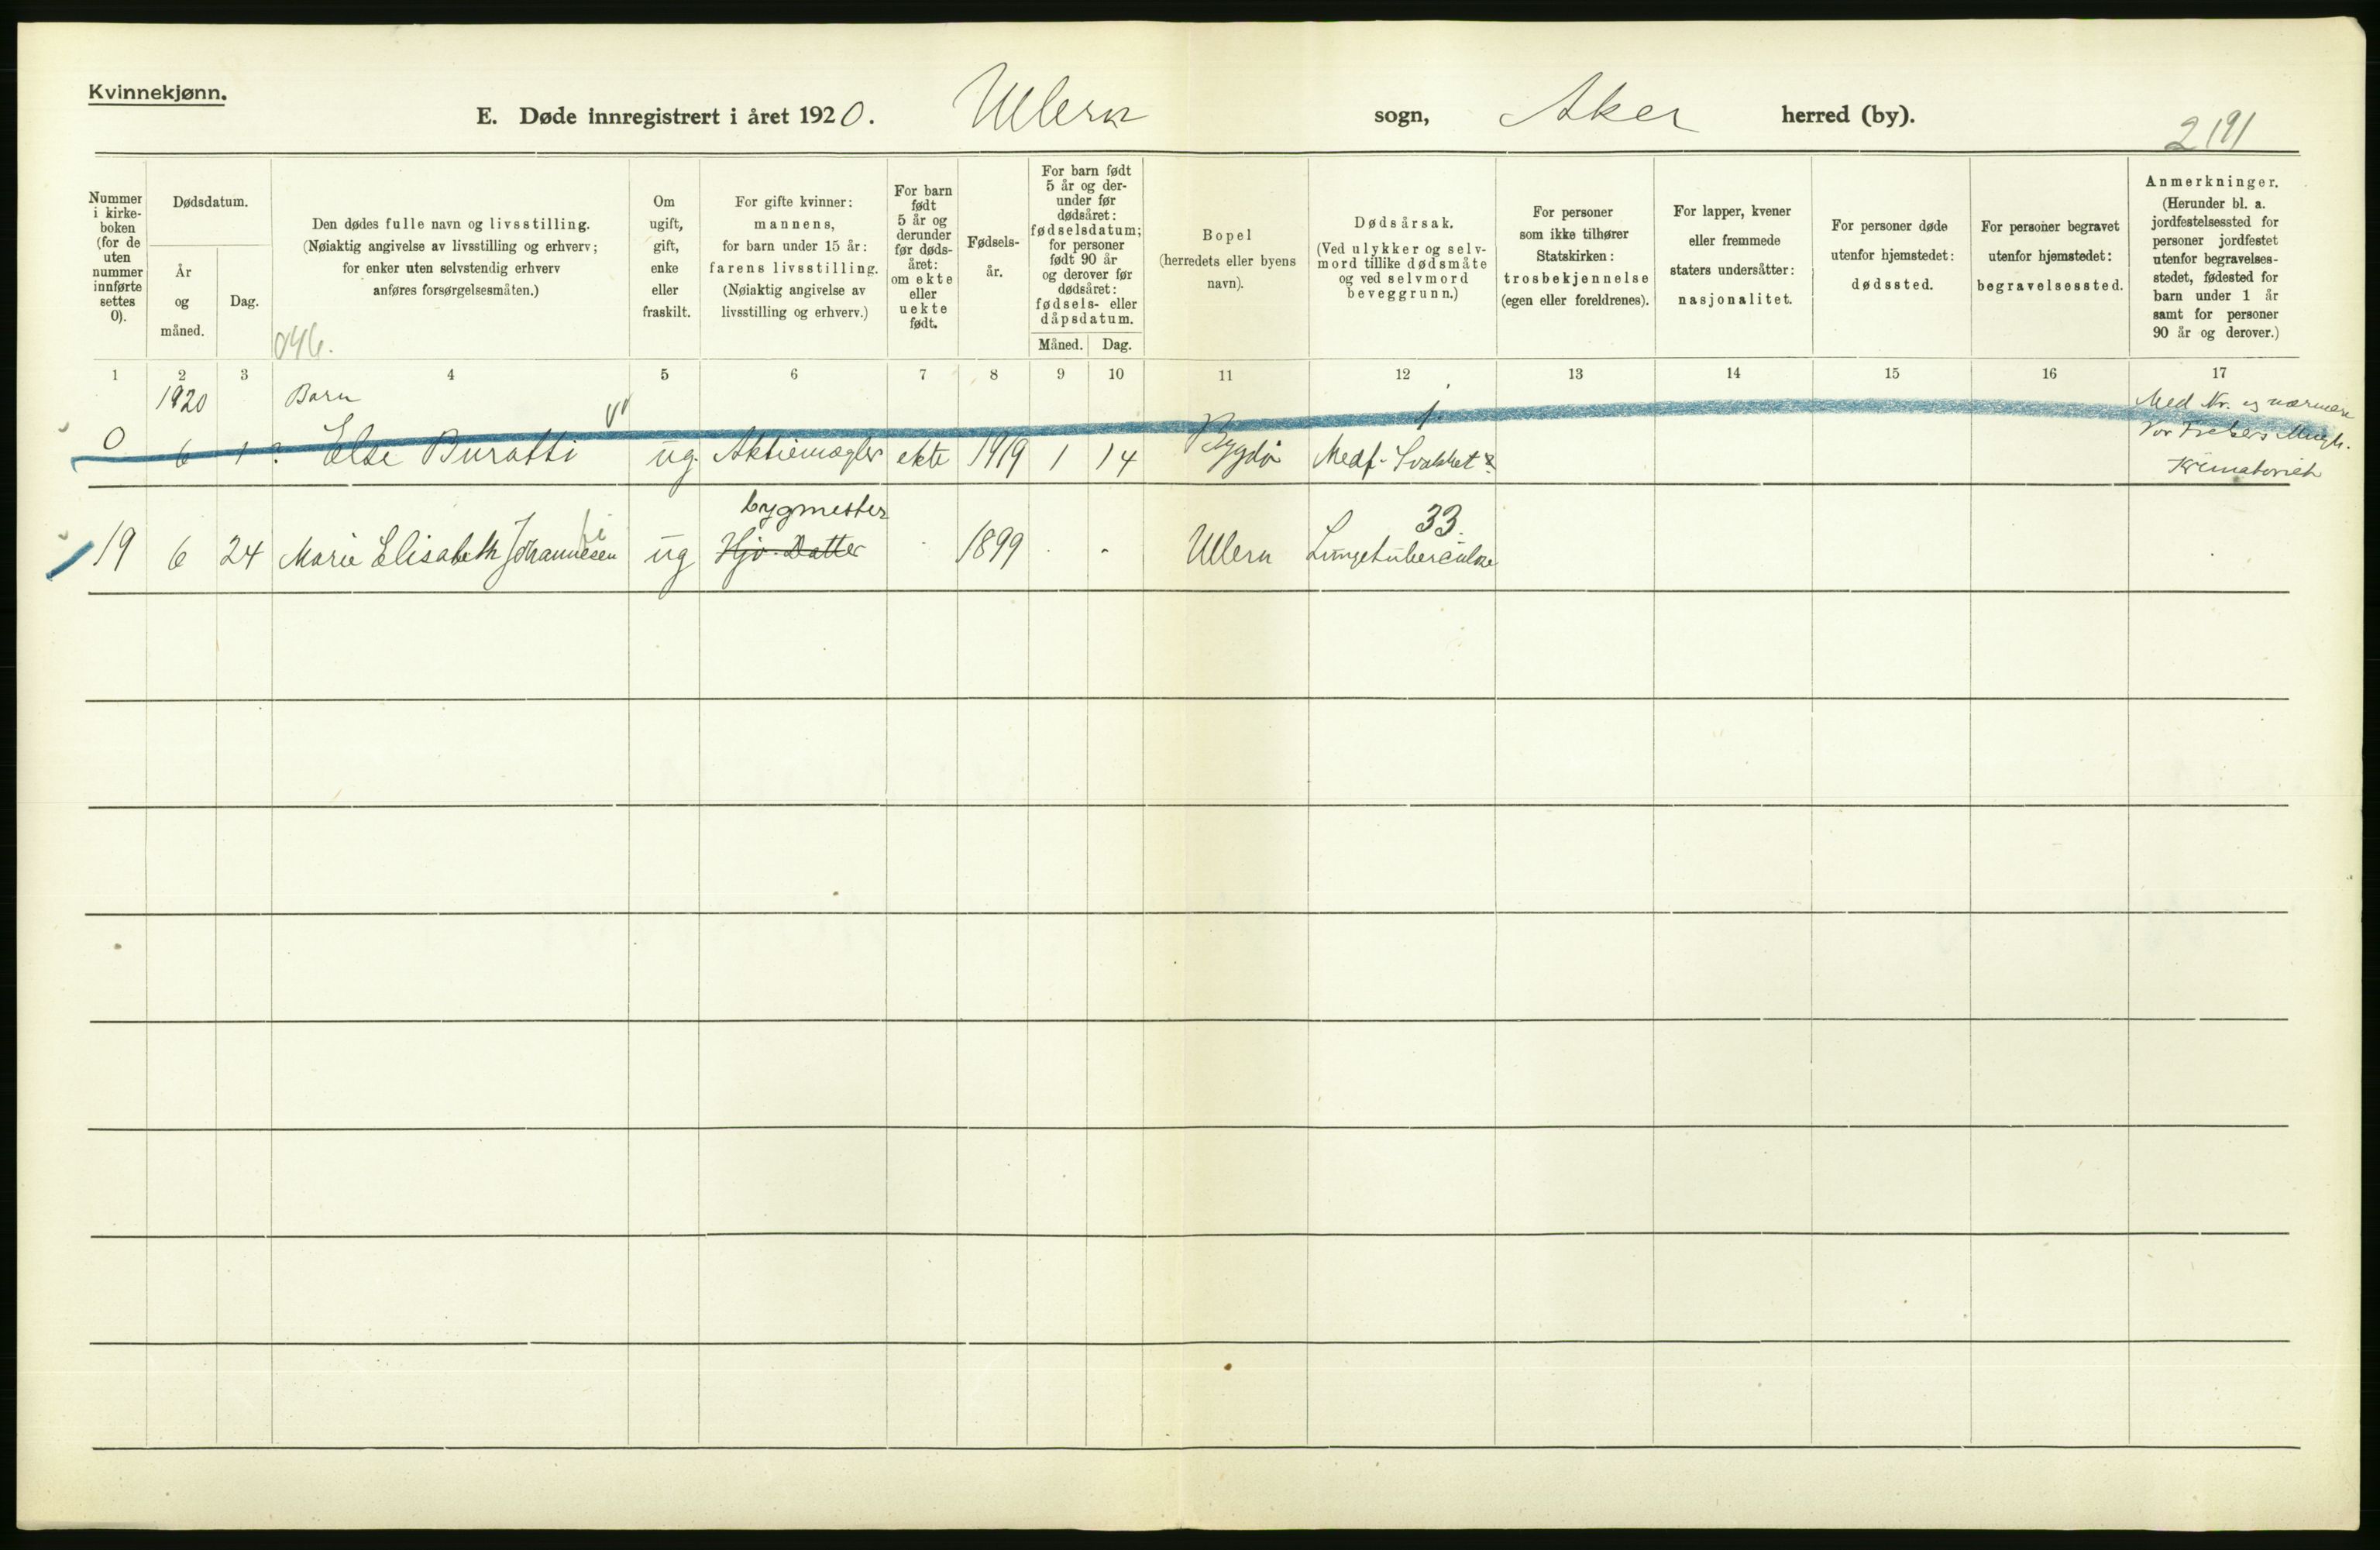 Kvinnekjønn.
E. Døde innregistrert i året 1920. Ullern sogn, Aker herred (by).
2191
Nummer i kirke- boken (for de uten nummer innførte settes 0).
Dødsdatum.
År og måned.
Dag.
Den dødes fulle navn og livsstilling.
(Nøiaktig angivelse av livsstilling og erhverv;
for enker uten selvstendig erhverv
anføres forsørgelsesmåten.)
046.
Om ugift, gift, enke eller fraskilt.
For gifte kvinner:
mannens,
for barn under 15 år:
farens livsstilling.
(Nøiaktig angivelse av
livsstilling og erhverv.)
For barn født 5 år og derunder før døds- året: om ekte eller uekte født.
Fødsels- år.
For barn født 5 år og der- under før dødsåret: fødselsdatum; for personer født 90 år og derover før dødsåret: fødsels- eller dåpsdatum.
Måned. Dag.
Bopel
(herredets eller byens
navn).
Dødsårsak.
(Ved ulykker og selv-
mord tillike dødsmåte
og ved selvmord
beveggrunn.)
For personer
som ikke tilhører
Statskirken:
trosbekjennelse
(egen eller foreldrenes).
For lapper, kvener
eller fremmede
staters undersåtter:
nasjonalitet.
For personer døde
utenfor hjemstedet:
dødssted.
For personer begravet
utenfor hjemstedet:
begravelsessted.
Anmerkninger.
(Herunder bl. a.
jordfestelsessted for
personer jordfestet
utenfor begravelses-
stedet, fødested for
barn under 1 år
samt for personer
90 år og derover.)
1 2 3 4 5 6 7 8 9 10 11 12 13 14 15 16 17
1920 Barn 1.
0 6 1 ? Else Buratti ug. Aktiemægler ekte 1919 1 14 Bygdø Medf. Svakhet
Med Nr. og nærmere
Vor Frelsers
Krematoriet
bygmester 33.
19 6 24 Marie Elisabeth Johannesen ug Hjv. Datter 1899 - Ullern Lungetuberculose